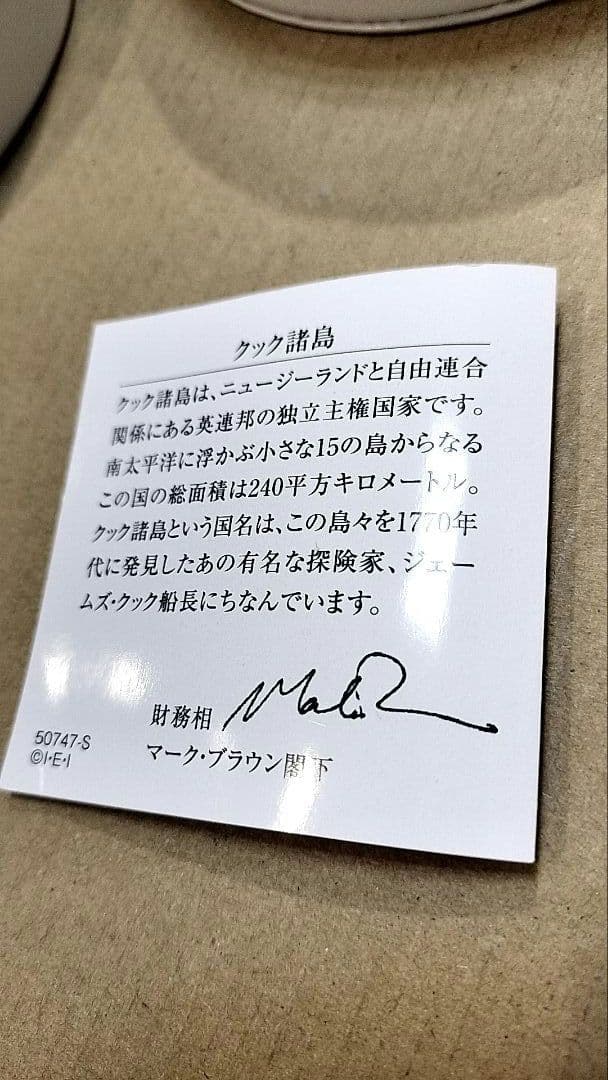 クック諸島
クック諸島は、ニュージーランドと自由連合
関係にある英連邦の独立主権国家です。
南太平洋に浮かぶ小さな15の島からなる
この国の総面積は240平方キロメートル。
クック諸島という国名は、この島々を1770年
代に発見したあの有名な探険家、ジェー
ムズ・クック船長にちなんでいます。
財務相
マーク・ブラウン閣下
50747-S
©I・E・I